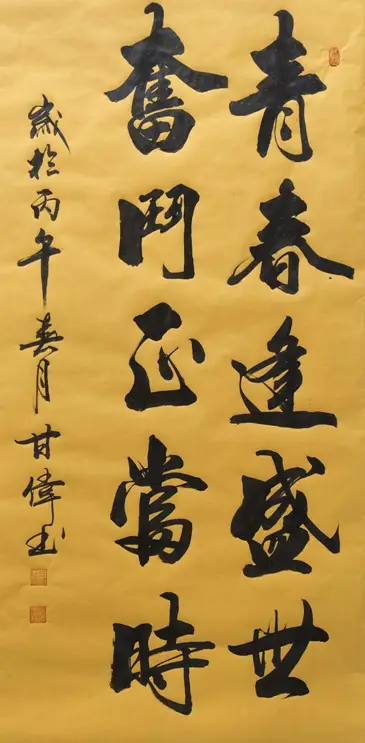 青春逢盛世
奮鬥正當時
歲於丙午春月甘偉